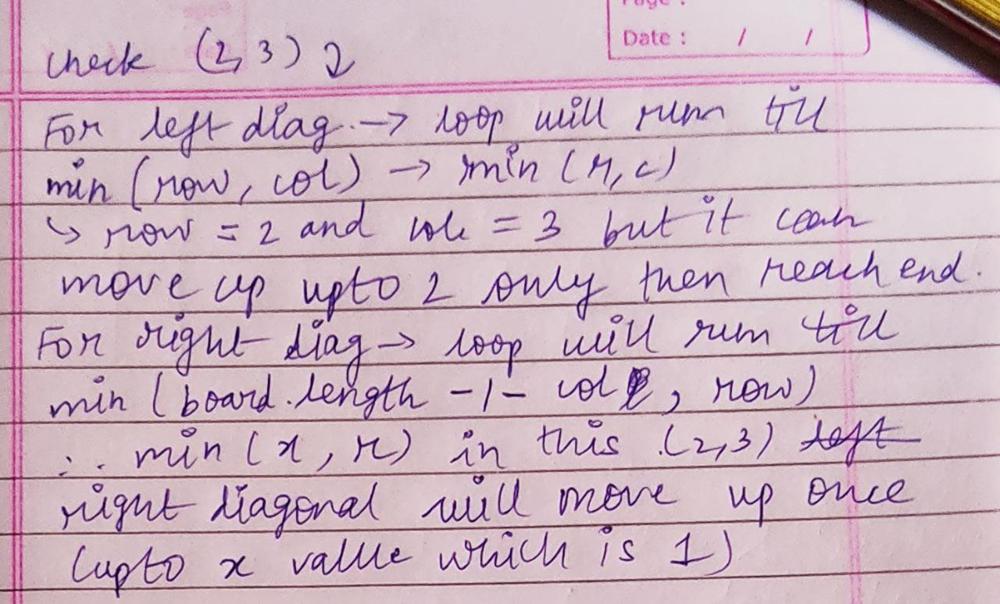 Page :
Date : / /
check (2,3) 2
For left diag. → loop will run till
min (row, col) → min (r, c)
↳ row = 2 and col = 3 but it can
move up upto 2 only then reach end.
For right diag → loop will run till
min (board.length -1- col, row)
∴ min (x, r) in this (2,3) left
right diagonal will move up once
(upto x value which is 1)